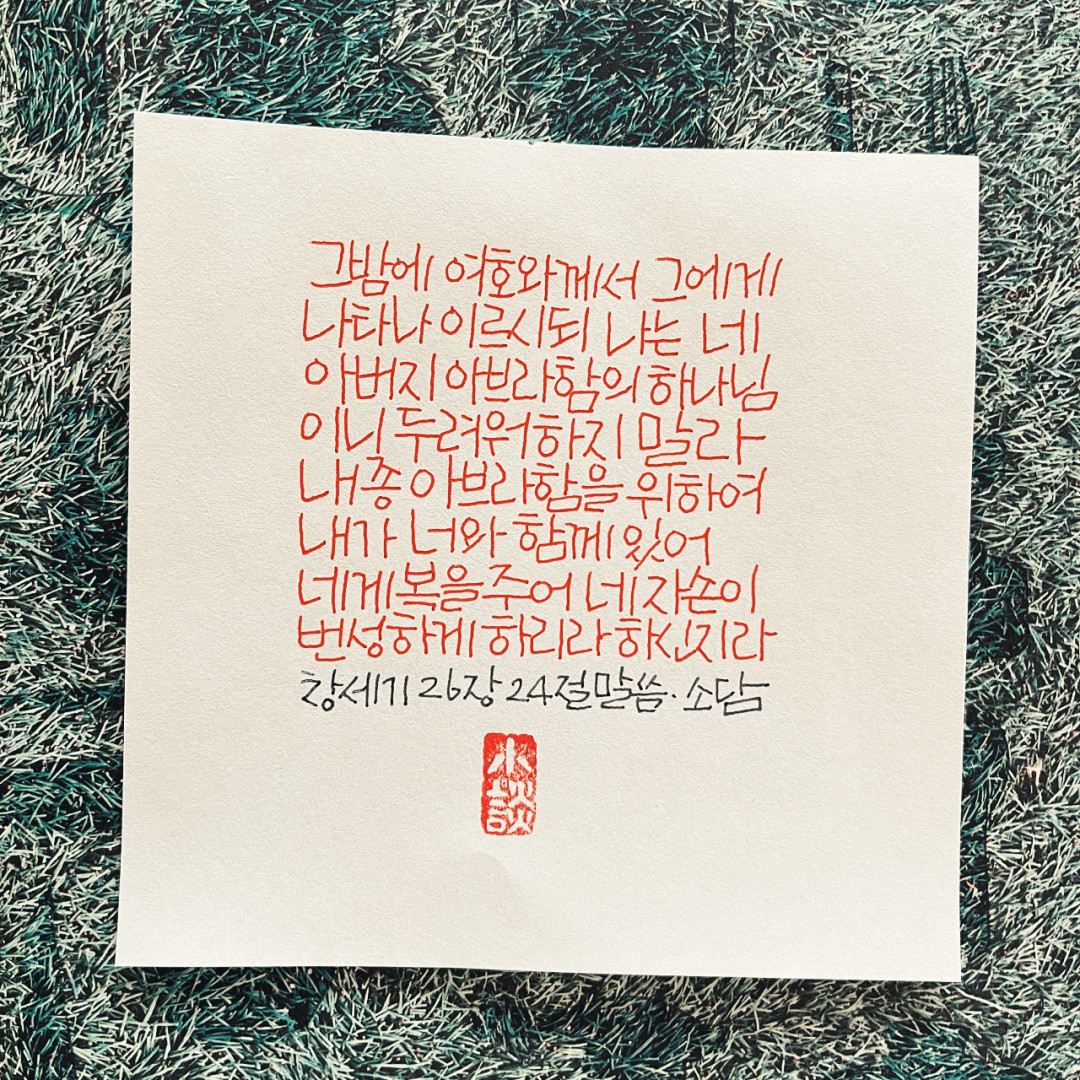 그밤에 여호와께서 그에게
나타나 이르시되 나는 네
아버지 아브라함의 하나님
이니 두려워하지 말라
내 종 아브라함을 위하여
내가 너와 함께 있어
네게 복을 주어 네 자손이
번성하게 하리라 하신지라
창세기 26장 24절 말씀. 소담
小談